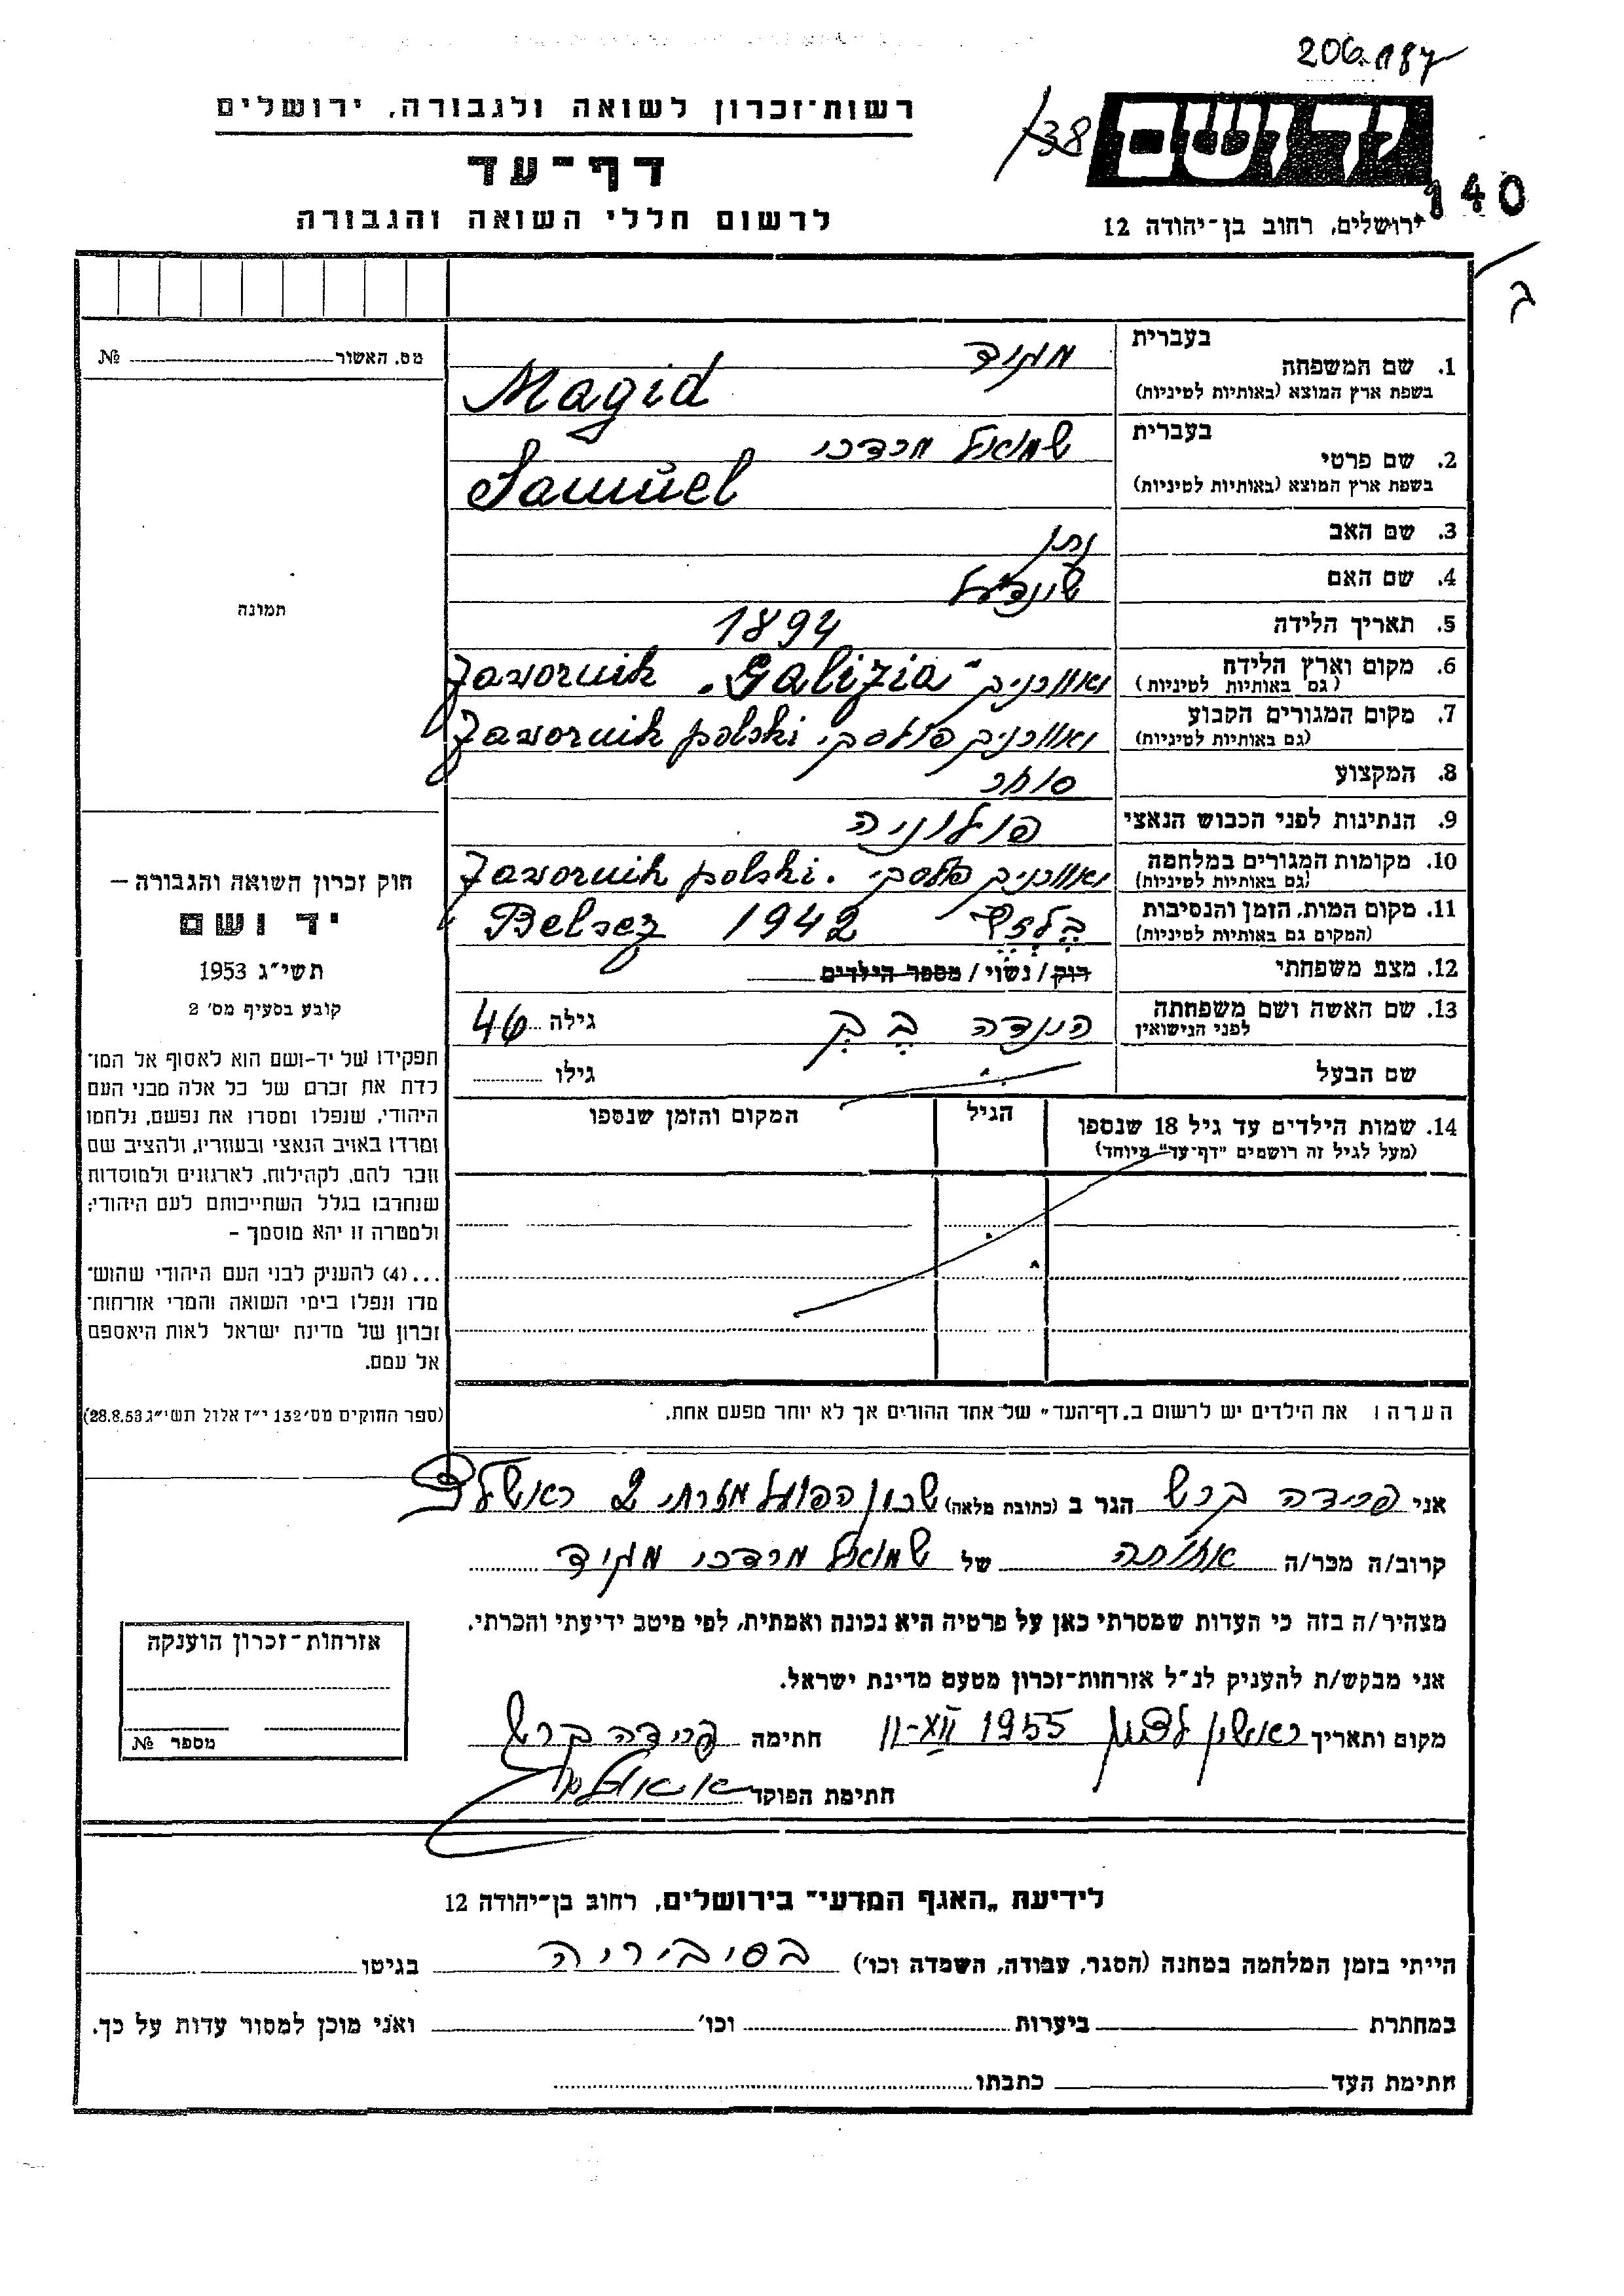 206.187
רשות-זכרון לשואה ולגבורה, ירושלים
138
יד ושם
דף-עד
140
לרשום חללי השואה והגבורה
ירושלים, רחוב בן-יהודה 12
ג
מס. האשור № 
1. שם המשפחה
בעברית מגיד
בשפת ארץ המוצא (באותיות לטיניות) Magid
2. שם פרטי
בעברית שמואל מרדכי
בשפת ארץ המוצא (באותיות לטיניות) Samuel
3. שם האב נתן
4. שם האם שיינדיל
תמונה
5. תאריך הלידה 1894
6. מקום וארץ הלידה יאוורניק "Javornik „Galizia
(גם באותיות לטיניות)
7. מקום המגורים הקבוע יאוורניק פולסקי Javornik polski
(גם באותיות לטיניות)
8. המקצוע סוחר
9. הנתינות לפני הכבוש הנאצי פולוניה
10. מקומות המגורים במלחמה יאוורניק פולסקי. Javornik polski
(גם באותיות לטיניות)
11. מקום המות, הזמן והנסיבות 1942 Belsez
(המקום גם באותיות לטיניות)
12. מצב משפחתי רווק / נשוי / מספר הילדים
13. שם האשה ושם משפחתה הינדה בק גילה 46
לפני הנישואין
שם הבעל גילו
14. שמות הילדים עד גיל 18 שנספו הגיל המקום והזמן שנספו
(מעל לגיל זה רושמים "דף-עד" מיוחד)
הערה: את הילדים יש לרשום ב„דף-העד" של אחד ההורים אך לא יותר מפעם אחת.
חוק זכרון השואה והגבורה –
יד ושם
תשי"ג 1953
קובע בסעיף מס' 2
תפקידו של יד-ושם הוא לאסוף אל המו־
לדת את זכרם של כל אלה מבני העם
היהודי, שנפלו ומסרו את נפשם, נלחמו
ומרדו באויב הנאצי ובעוזריו, ולהציב שם
וזכר להם, לקהילות, לארגונים ולמוסדות
שנחרבו בגלל השתייכותם לעם היהודי;
ולמטרה זו יהא מוסמך –
...(4) להעניק לבני העם היהודי שהוש־
מדו ונפלו בימי השואה והמרי אזרחות־
זכרון של מדינת ישראל לאות היאספם
אל עמם.
(ספר החוקים מס' 132 י"ז אלול תשי"ג 28.8.53)
אני פרידה ברש הגר ב (כתובת מלאה) שכון הפועל מזרחי 2 ראשל"צ
קרוב/ה מכר/ה אחותה של שמואל מרדכי מגיד
מצהיר/ה בזה כי העדות שמסרתי כאן על פרטיה היא נכונה ואמתית, לפי מיטב ידיעתי והכרתי.
אני מבקש/ת להעניק לנ"ל אזרחות-זכרון מטעם מדינת ישראל.
מקום ותאריך ראשון לציון 11-XII 1955 חתימה פרידה ברש
חתימת הפוקד
אזרחות-זכרון הוענקה
מספר №
לידיעת „האגף המדעי" בירושלים, רחוב בן-יהודה 12
הייתי בזמן המלחמה במחנה (הסגר, עבודה, השמדה וכו') בסיביריה בגיטו
במחתרת ביערות וכו' ואני מוכן למסור עדות על כך.
חתימת העד כתבתו